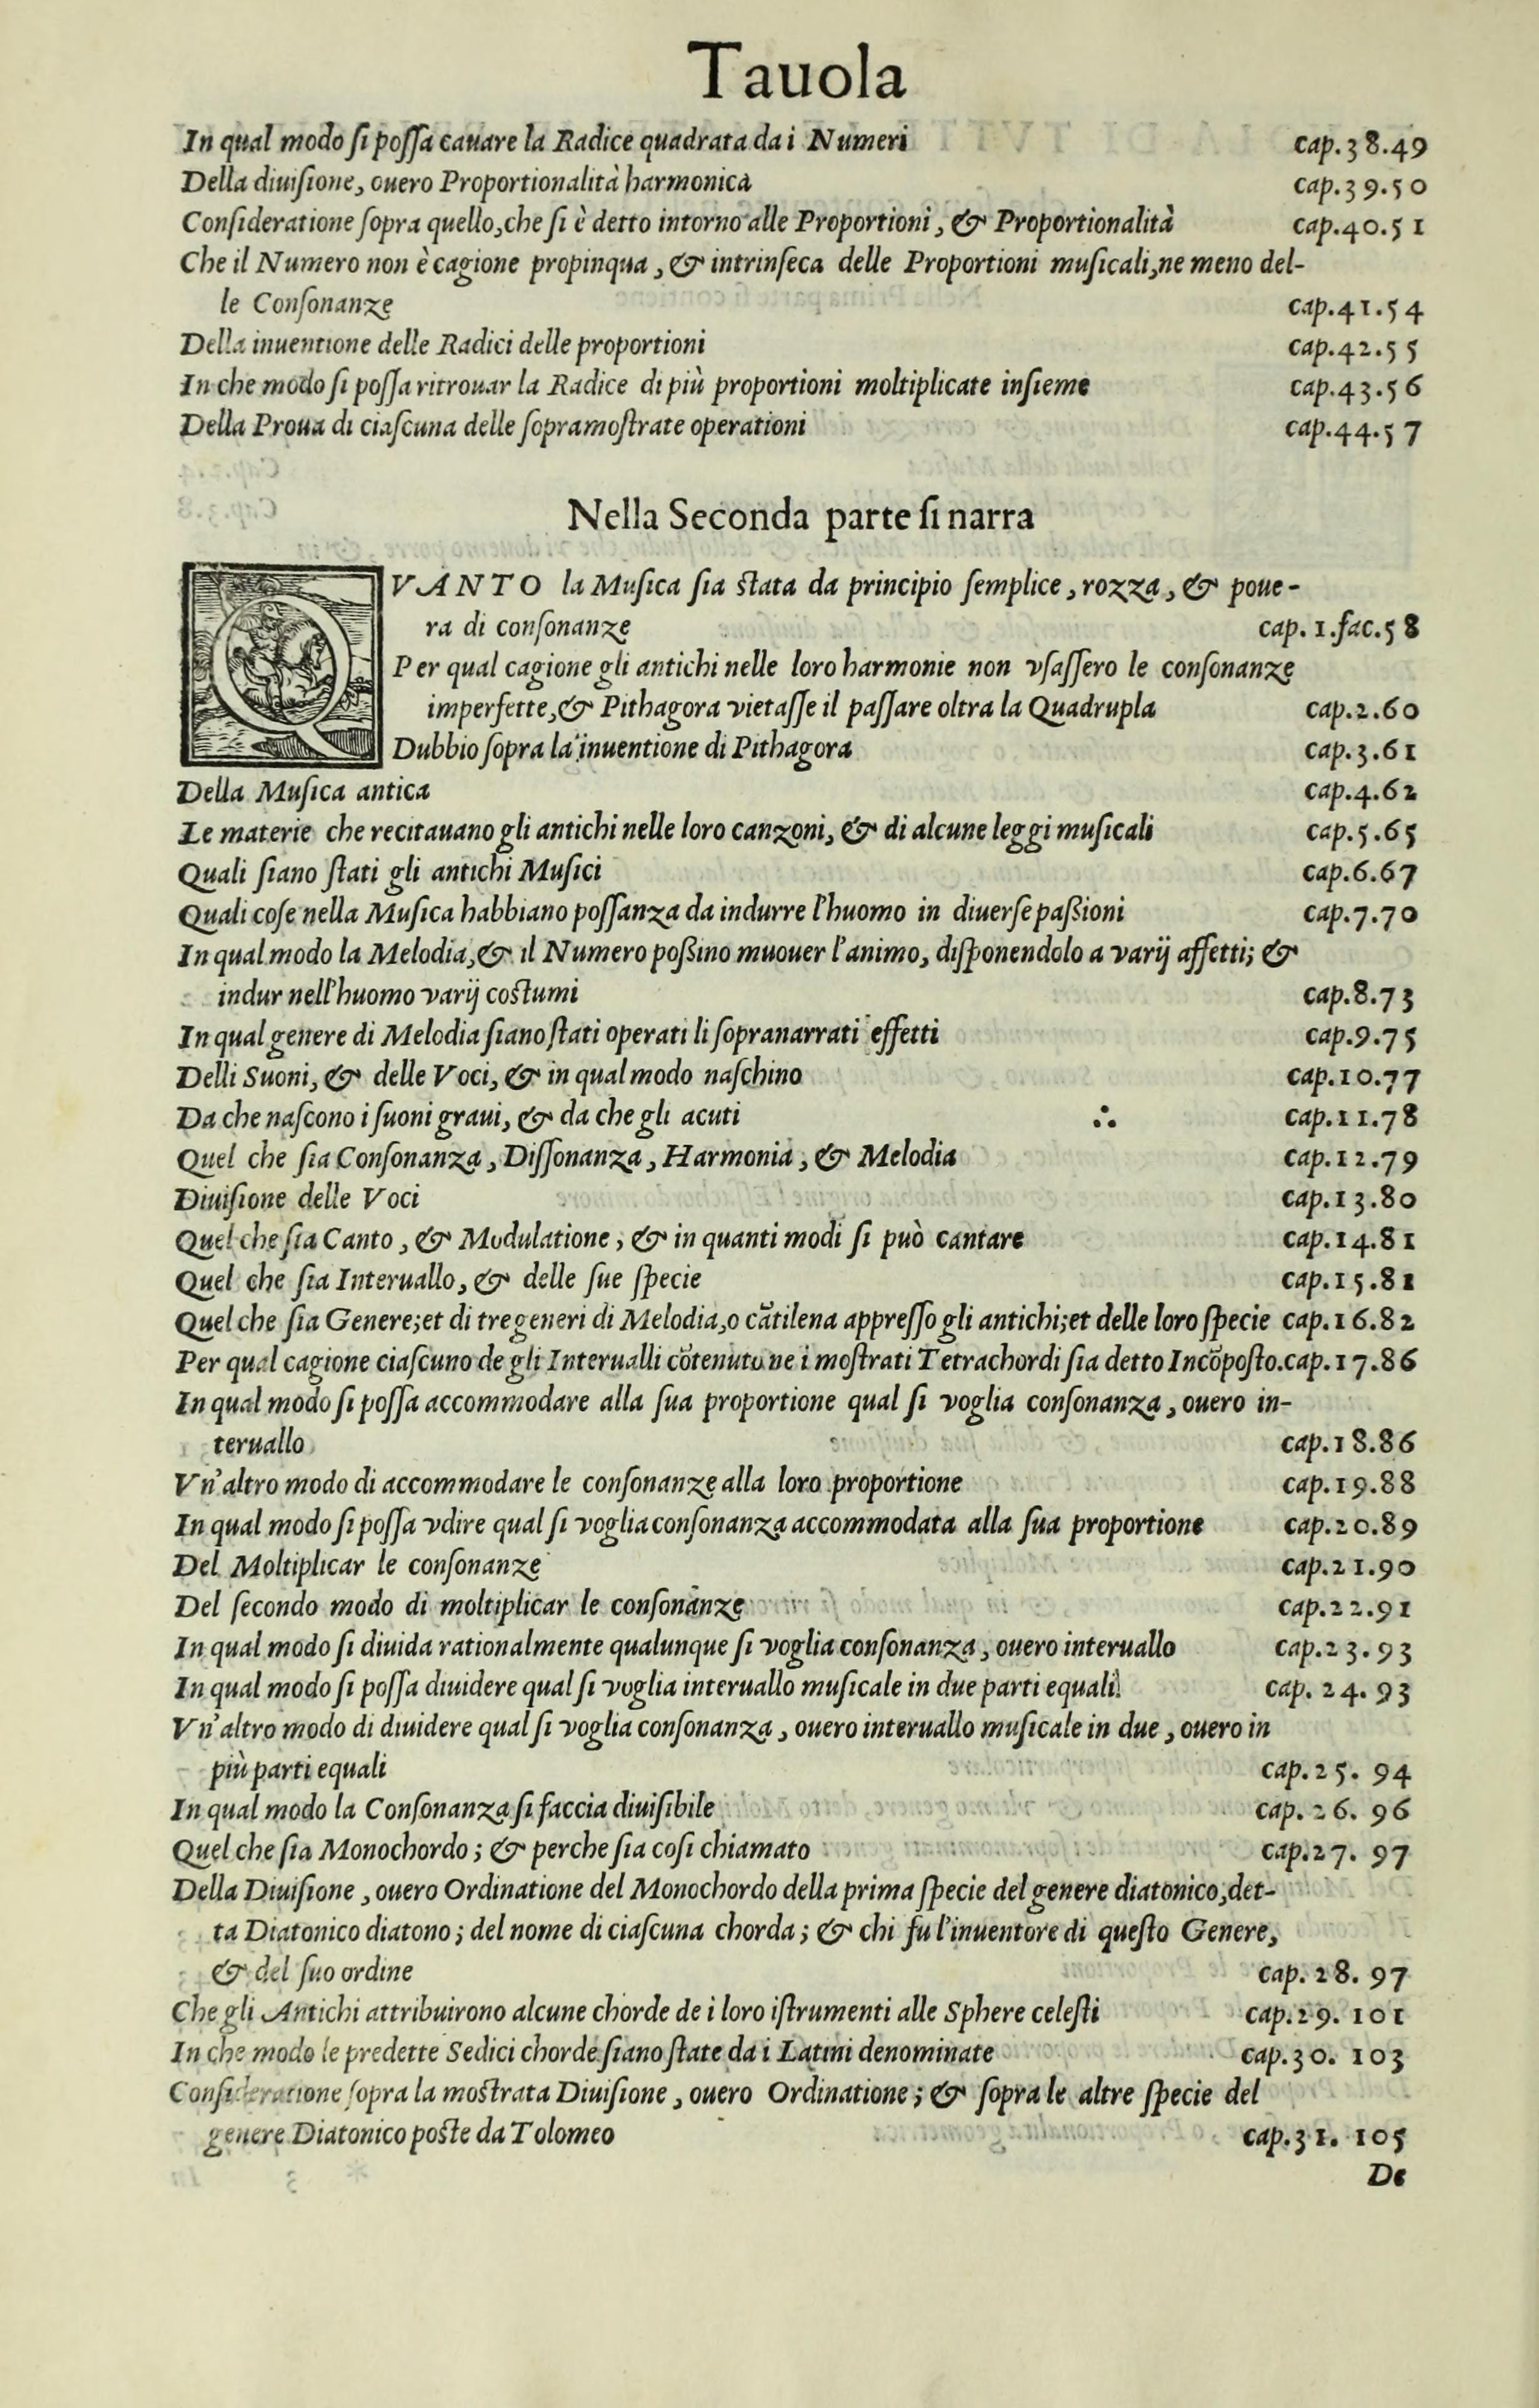 Tauola
In qual modo ſi poſſa cauare la Radice quadrata da i Numeri cap.38.49
Della diuiſione, ouero Proportionalità harmonica cap.39.50
Conſideratione ſopra quello, che ſi è detto intorno alle Proportioni, & Proportionalità cap.40.51
Che il Numero non è cagione propinqua, & intrinſeca delle Proportioni muſicali, ne meno del-
le Conſonanze cap.41.54
Della inuentione delle Radici delle proportioni cap.42.55
In che modo ſi poſſa ritrouar la Radice di più proportioni moltiplicate inſieme cap.43.56
Della Proua di ciaſcuna delle ſopramoſtrate operationi cap.44.57
Nella Seconda parte ſi narra
QVANTO la Muſica ſia ſtata da principio ſemplice, rozza, & poue-
ra di conſonanze cap. 1.fac.58
Per qual cagione gli antichi nelle loro harmonie non vſaſſero le conſonanze
imperfette, & Pithagora vietaſſe il paſſare oltra la Quadrupla cap.2.60
Dubbio ſopra la inuentione di Pithagora cap.3.61
Della Muſica antica cap.4.62
Le materie che recitauano gli antichi nelle loro canzoni, & di alcune leggi muſicali cap.5.65
Quali ſiano ſtati gli antichi Muſici cap.6.67
Quali coſe nella Muſica habbiano poſſanza da indurre l'huomo in diuerſe paßioni cap.7.70
In qual modo la Melodia, & il Numero poßino muouer l'animo, diſponendolo a varij affetti; &
indur nell'huomo varij coſtumi cap.8.73
In qual genere di Melodia ſiano ſtati operati li ſopranarrati effetti cap.9.75
Delli Suoni, & delle Voci, & in qual modo naſchino cap.10.77
Da che naſcono i ſuoni graui, & da che gli acuti ∴ cap.11.78
Quel che ſia Conſonanza, Diſſonanza, Harmonia, & Melodia cap.12.79
Diuiſione delle Voci cap.13.80
Quel che ſia Canto, & Modulatione, & in quanti modi ſi può cantare cap.14.81
Quel che ſia Interuallo, & delle ſue ſpecie cap.15.81
Quel che ſia Genere; et di tre generi di Melodia, o cãtilena appreſſo gli antichi; et delle loro ſpecie cap.16.82
Per qual cagione ciaſcuno de gli Interualli cõtenuto ne i moſtrati Tetrachordi ſia detto Incõpoſto. cap.17.86
In qual modo ſi poſſa accommodare alla ſua proportione qual ſi voglia conſonanza, ouero in-
teruallo cap.18.86
Vn'altro modo di accommodare le conſonanze alla loro proportione cap.19.88
In qual modo ſi poſſa vdire qual ſi voglia conſonanza accommodata alla ſua proportione cap.20.89
Del Moltiplicar le conſonanze cap.21.90
Del ſecondo modo di moltiplicar le conſonanze cap.22.91
In qual modo ſi diuida rationalmente qualunque ſi voglia conſonanza, ouero interuallo cap.23.93
In qual modo ſi poſſa diuidere qual ſi voglia interuallo muſicale in due parti equali cap. 24. 93
Vn'altro modo di diuidere qual ſi voglia conſonanza, ouero interuallo muſicale in due, ouero in
più parti equali cap.25. 94
In qual modo la Conſonanza ſi faccia diuiſibile cap. 26. 96
Quel che ſia Monochordo; & perche ſia coſi chiamato cap.27. 97
Della Diuiſione, ouero Ordinatione del Monochordo della prima ſpecie del genere diatonico, det-
ta Diatonico diatono; del nome di ciaſcuna chorda; & chi fu l'inuentore di queſto Genere,
& del ſuo ordine cap. 28. 97
Che gli Antichi attribuirono alcune chorde de i loro iſtrumenti alle Sphere celeſti cap.29. 101
In che modo le predette Sedici chorde ſiano ſtate da i Latini denominate cap.30. 103
Conſideratione ſopra la moſtrata Diuiſione, ouero Ordinatione; & ſopra le altre ſpecie del
genere Diatonico poſte da Tolomeo cap.31. 105
De